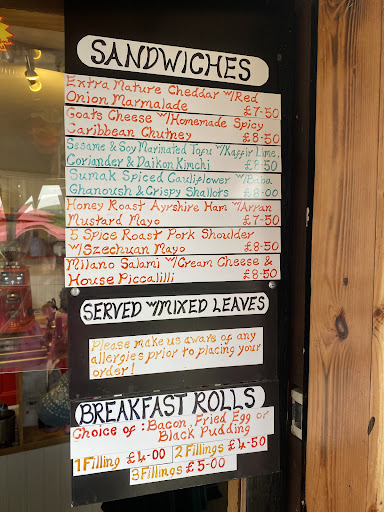 SANDWICHES
Extra Mature Cheddar w/Red
Onion Marmalade £7-50
Goats Cheese w/Homemade Spicy
Caribbean Chutney £8-50
Sesame & Soy Marinated Tofu w/Kaffir Lime,
Coriander & Daikon Kimchi £8-50
Sumak Spiced Cauliflower w/Baba
Ghanoush & Crispy Shallots £8-00
Honey Roast Ayrshire Ham w/Arran
Mustard Mayo £7-50
5 Spice Roast Pork Shoulder
w/Szechuan Mayo £8-50
Milano Salami w/Cream Cheese &
House Piccalilli £8-50
SERVED w/MIXED LEAVES
Please make us aware of any
allergies prior to placing your
order!
BREAKFAST ROLLS
Choice of : Bacon, Fried Egg or
Black Pudding
1 Filling £4-00 2 Fillings £4-50
3 Fillings £5-00